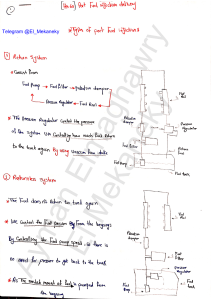 Port Fuel injection delivery
Telegram @El_Mekaneky
Types of port Fuel injection :
① Return System
* Consist From
Fuel Pump → Fuel Filter → pulsation damper
Pressure Regulator ← Fuel Rail
* The Pressure Regulator Control the pressure
of the system via Controlling how much Fuel Return
to the tank again By using vacuum from
Fuel Rail
Pressure Regulator
Pulsation damper
Fuel Filter
Fuel Pump
Fuel Tank
② Returnless System
* The Fuel doesn't Return to tank again
* We Control the Fuel pressure By From the beginning
By Controlling the Fuel pump speed so there is
no need for pressure to get back to the tank
* As the needed amount of fuel is pumped from
the beginning
Fuel Rail
Pulsation damper
Fuel Filter
Pressure Regulator
Fuel Pump
Ayman Elmaghawry
El_Mekaneky